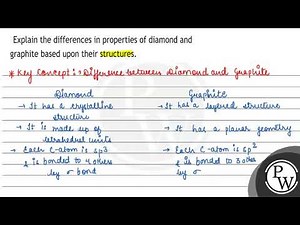 Explain the differences in properties of diamond and
graphite based upon their structures.
* Key Concept :→ Difference between Diamond and Graphite
Diamond
→ It has a crystalline
structure
→ It is made up of
tetrahedral units
→ Each C-atom is sp3
& is bonded to 4 others
by σ bond
Graphite
→ It has a layered structure
→ It has a planar geometry
→ Each C-atom is sp2
& is bonded to 3 others
by σ
PW